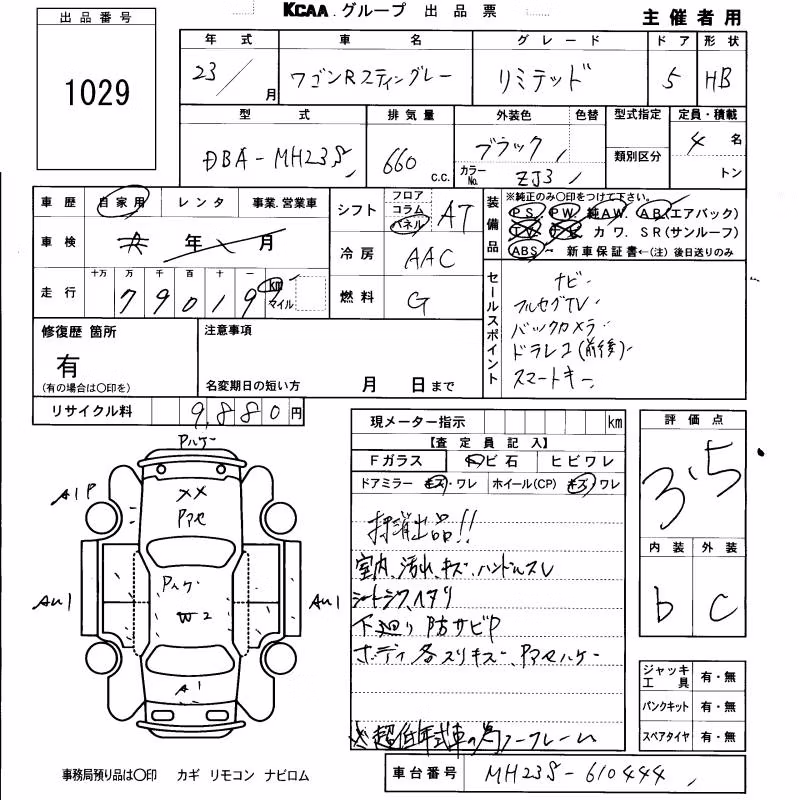 KCAA.グループ 出品票
主催者用
出品番号
1029
年式 車名 グレード ドア 形状
23/月 ワゴンRスティングレー リミテッド 5 HB
型式 排気量 外装色 色替 型式指定 定員・積載
DBA-MH23S 660 c.c. ブラック 4名
カラーNo. ZJ3 類別区分 トン
車歴 自家用 レンタ 事業.営業車
車検 年 月
走行 十万 万 千 百 十 一
79019 km マイル
シフト フロア コラム パネル AT
冷房 AAC
燃料 G
装備品 ※純正のみ○印をつけて下さい。
PS. PW. 純AW. AB(エアバック)
カワ. SR(サンルーフ)
ABS 新車保証書←(注) 後日送りのみ
セールスポイント
ナビ
フルセグTV
バックカメラ
ドラレコ(前後)
スマートキー
修復歴 箇所
有
(有の場合は○印を)
注意事項
名変期日の短い方 月 日まで
リサイクル料 9,880円
現メーター指示 km
【査定員記入】
Fガラス 飛ビ石 ヒビワレ
ドアミラー キズ・ワレ ホイール(CP) キズ ワレ
室内、汚れ、キズ、ハンドルスレ
シートシワ、ヘタリ
下廻り防サビP
ボディ各スリキズ、Pアセハゲ
※超低年式車の為ノークレーム
評価点
3.5
内装 外装
b C
ジャッキ工具 有・無
パンクキット 有・無
スペアタイヤ 有・無
車台番号 MH23S-610444
Pハゲ
A1P
XX
Pアセ
Pハゲ
W2
AU1
AU1
A1
事務局預り品は○印 カギ リモコン ナビロム